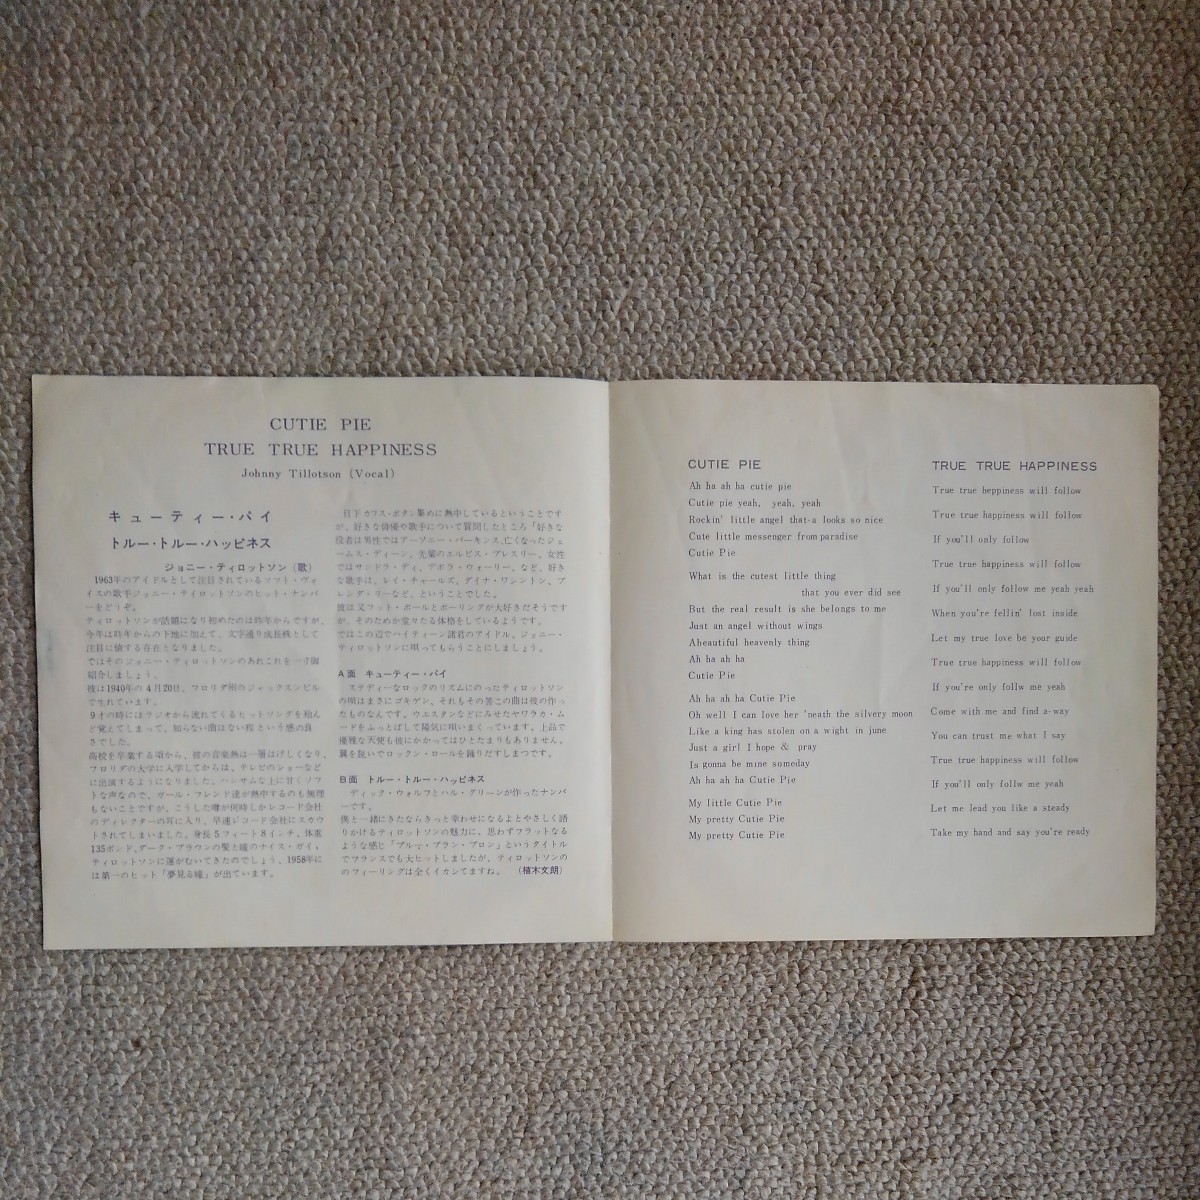 CUTIE PIE
TRUE TRUE HAPPINESS
Johnny Tillotson (Vocal)
キューティー・パイ
トルー・トルー・ハッピネス
ジョニー・ティロットソン (歌)
1963年のアイドルとして注目されているソフト・ヴォ
イスの歌手ジョニー・テイロットソンのヒット・ナンバ
ーをどうぞ。
ティロットソンが話題になり初めたのは昨年からですが、
今年は昨年からの下地に加えて、文字通り成長株として
注目に値する存在となりました。
ではそのジョニー・ティロットソンのあれこれを一寸御
紹介しましょう。
彼は1940年の4月20日、フロリダ州のジャックスンビル
で生れています。
9才の時にはラジオから流れてくるヒットソングを殆ん
ど覚えてしまって、知らない曲はない程という感の良
さでした。
高校を卒業する頃から、彼の音楽熱は一層はげしくなり、
フロリダの大学に入学してからは、テレビのショーなど
に出演するようになりました。ハンサムな上に甘くソフ
トな声なので、ガール・フレンド達が熱中するのも無理
もないことですが、こうした噂が何時しかレコード会社
のディレクターの耳に入り、早速レコード会社にスカウ
トされてしまいました。身長5フィート8インチ、体重
135ポンド、ダーク・ブラウンの髪と瞳のナイス・ガイ、
ティロットソンに運がむいてきたのでしょう、1958年に
は第一のヒット「夢見る瞳」が出ています。
目下カフス・ボタン集めに熱中しているということです
が、好きな俳優や歌手について質問したところ「好きな
役者は男性ではアーソニー・パーキンス、亡くなったジェ
ームス・ディーン、先輩のエルビス・プレスリー、女性
ではサンドラ・ディ、デボラ・ウォーリー、など、好き
な歌手は、レイ・チャールズ、ダイナ・ワシントン、ブ
レンダ・リーなど、ということでした。
彼は又フット・ボールとボーリングが大好きだそうです
が、そのためか堂々たる体格をしているようです。
ではこの辺でハイティーン諸君のアイドル、ジョニー・
ティロットソンに唄ってもらうことにしましょう。
A面 キューティー・パイ
ステディーなロックのリズムにのったティロットソン
の唄はまさにゴキゲン、それもその筈この曲は彼の作っ
たものなんです。ウエスタンなどにみせたヤワラカ・ム
ードをふっとばして陽気に唄いまくっています。上品で
優雅な天使も彼にかかってはひとたまりもありません。
翼を脱いでロックン・ロールを踊りだすしまつです。
B面 トルー・トルー・ハッピネス
ディック・ウォルフとハル・グリーンが作ったナンバ
ーです。
僕と一緒にきたならきっと幸わせになるよとやさしく語
りかけるティロットソンの魅力に、思わずフラットなる
ような感じ「ブルマ・ブラン・ブロン」というタイトル
でフランスでも大ヒットしましたが、ティロットソンの
のフィーリングは全くイカシてますね。 (植木文朗)
CUTIE PIE
Ah ha ah ha cutie pie
Cutie pie yeah, yeah, yeah
Rockin' little angel that-a looks so nice
Cute little messenger from paradise
Cutie Pie
What is the cutest little thing
that you ever did see
But the real result is she belongs to me
Just an angel without wings
Abeautiful heavenly thing
Ah ha ah ha
Cutie Pie
Ah ha ah ha Cutie Pie
Oh well I can love her 'neath the silvery moon
Like a king has stolen on a wight in june
Just a girl I hope & pray
Is gonna be mine someday
Ah ha ah ha Cutie Pie
My little Cutie Pie
My pretty Cutie Pie
My pretty Cutie Pie
TRUE TRUE HAPPINESS
True true heppiness will follow
True true happiness will follow
If you'll only follow
True true happiness will follow
If you'll only follow me yeah yeah
When you're fellin' lost inside
Let my true love be your guide
True true happiness will follow
If you're only follw me yeah
Come with me and find a-way
You can trust me what I say
True true happiness will follow
If you'll only follw me yeah
Let me lead you like a steady
Take my hand and say you're ready